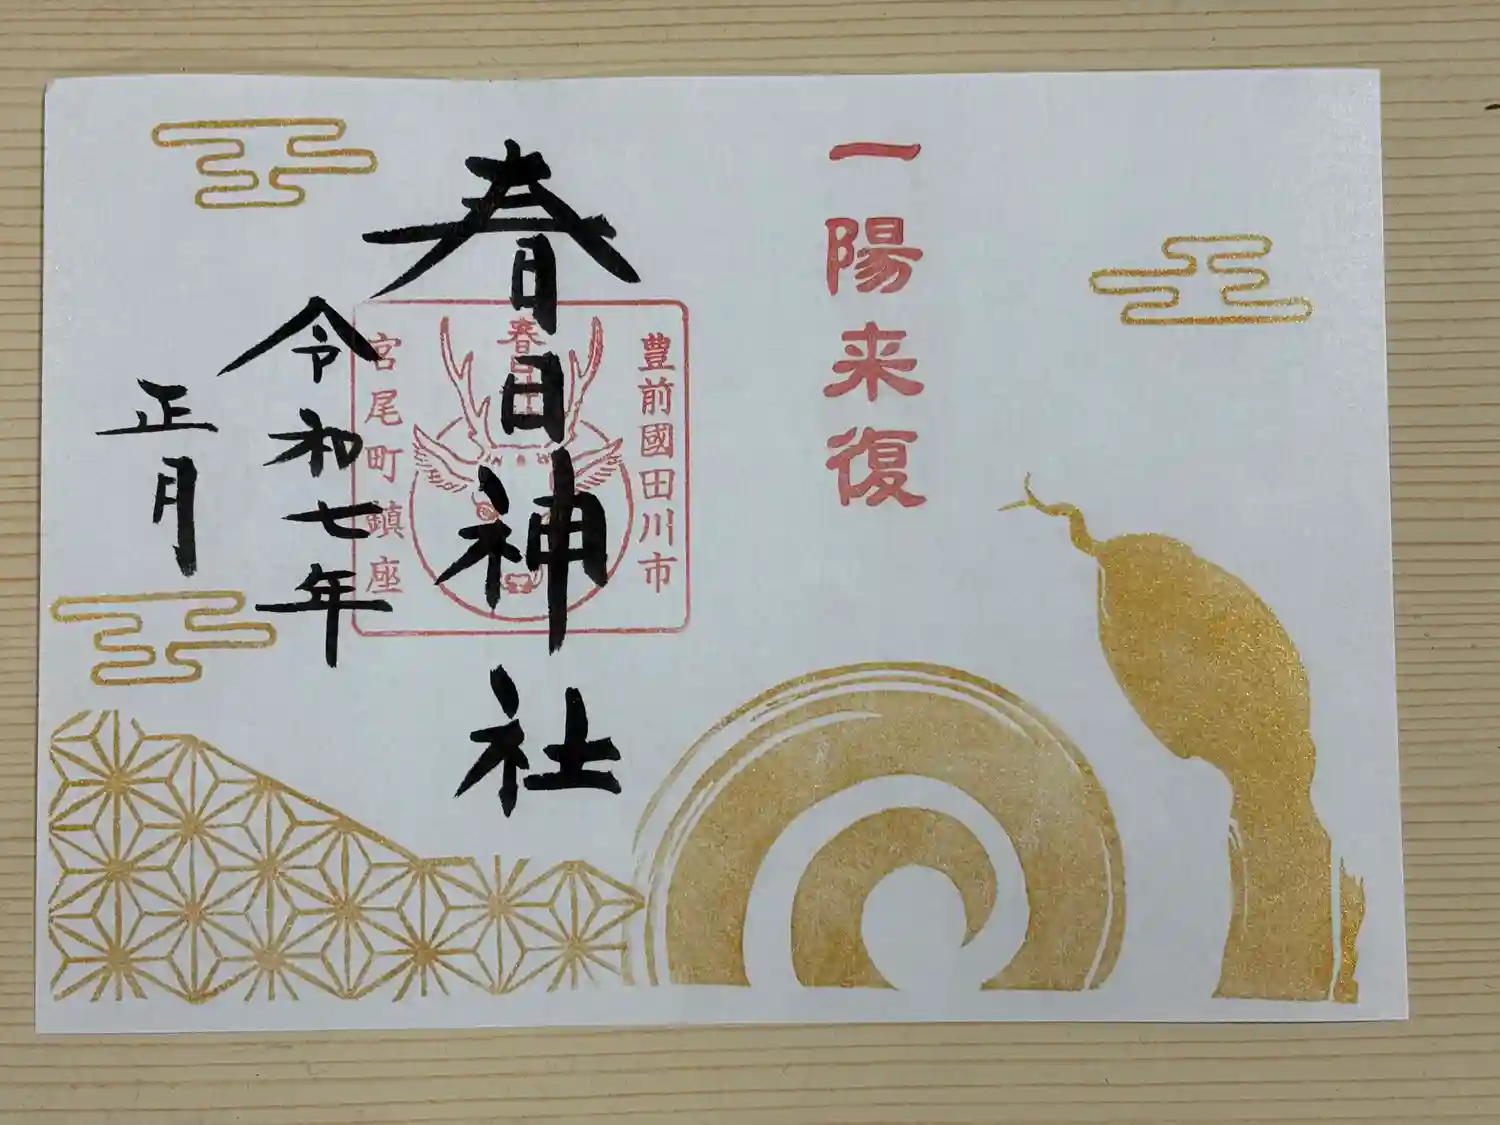 一陽来復
豊前國田川市
春日神社
宮尾町鎮座
令和七年
正月